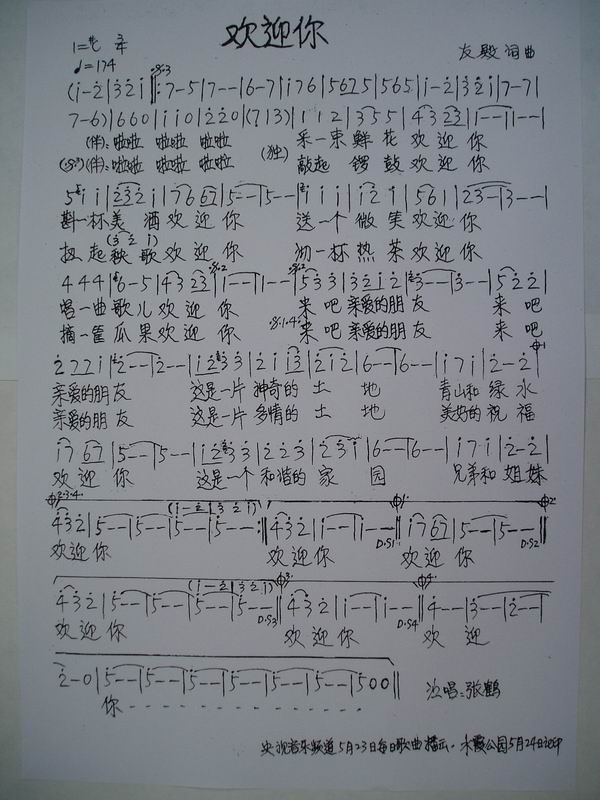 欢迎你
友殿词曲
♩=174
(i-2|3 2 i|7-5|7--|6-7|i 7 6|5 6 7 5|5 6 5|i-2|3 2 i|7-7|
7-6)|6 6 0|i i 0|2 2 0|(7 1 3)|1 1 2|3 5 5|4 3 2 3|1--|1--|
(伴):啦啦 啦啦 啦啦 (独) 采一束 鲜花 欢迎你
(伴):啦啦 啦啦 啦啦 敲起 锣鼓 欢迎你
5 i i|2 3 2 i|7 6 6 7|5--|5--|i i i|i 2 i|5 6 1|2 3-|3--|
斟一杯美 酒欢迎你 送一个微笑欢迎你
(3 2 i)
扭起秧歌欢迎你 沏一杯热茶欢迎你
4 4 4|6-5|4 3 2 3|1--|1--|5 3 3|3 2 i 2|3--|3--|5 2 2|
唱一曲歌儿欢迎你 来吧亲爱的朋友 来吧
摘一筐瓜果欢迎你 来吧亲爱的朋友 来吧
2 7 7 i|2--|2--|i 2 3 3|2 i i 3|2 i 2|6--|6--|i 7 i|2-2|
亲爱的朋友 这是一片 神奇的土地 青山和绿水
亲爱的朋友 这是一片 多情的土地 美好的祝福
i 7 6 7|5--|5--|i 2 3 3|2 2 3|2 3 i|6--|6--|i 7 i|2-2|
欢迎你 这是一个 和谐的家园 兄弟和姐妹
2.3.4.
(i-2|3 2 i)
4 3 2|5--|5--|5--|5--:‖4 3 2|i--|i--‖i 7 6 7|5--|5--‖
D.S1 D.S2
欢迎你 欢迎你 欢迎你
(i-2|3 2 i)
4 3 2|5--|5--|5--|5--‖4 3 2|i--|i--‖4--|3--|2--|
D.S3 D.S4
欢迎你 欢迎你 欢迎
2-0|5--|5--|5--|5--|5--|5--|5 0 0‖
你-------- 演唱:张鹤
央视音乐频道5月23日每日歌曲播出. 公园5月24日